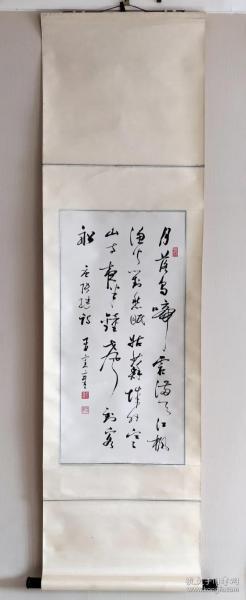 月落乌啼霜满天江枫
渔火对愁眠姑苏城外寒
山寺夜半钟声到客
船
唐张继诗